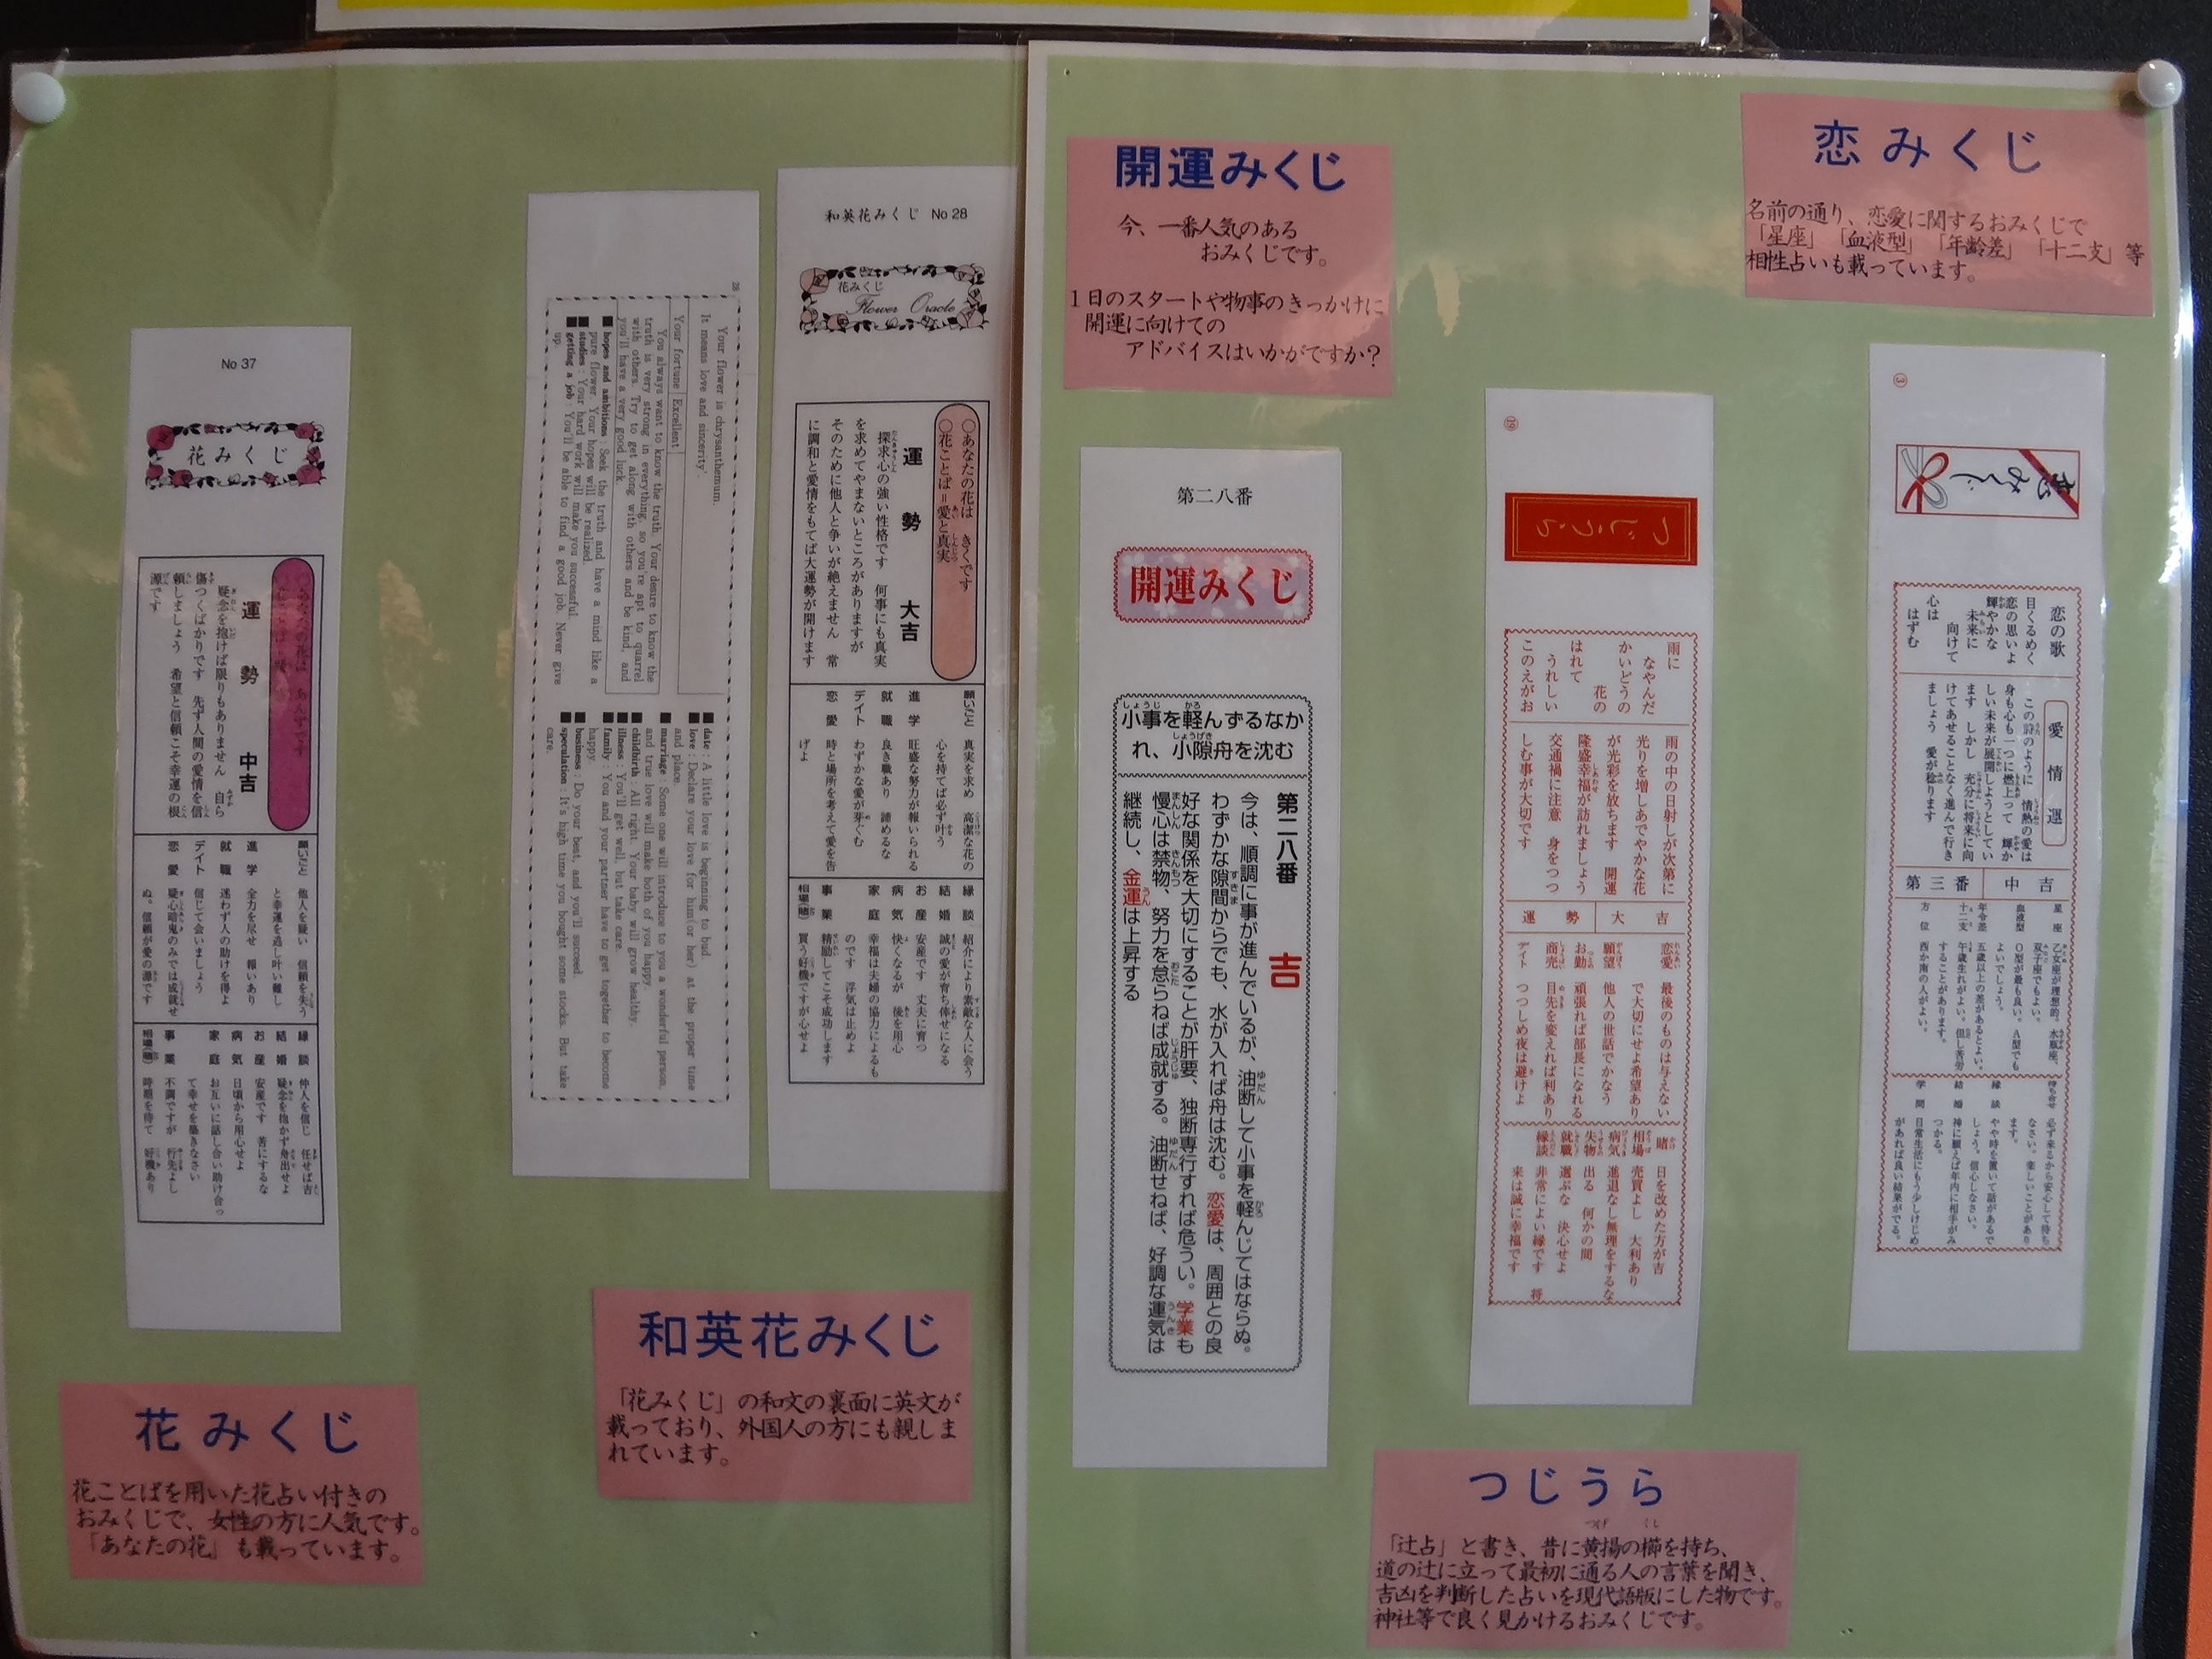 No 37
花みくじ
運勢 中吉
疑念を抱けば限りもありません 自ら
傷つくばかりです 先ず人間の愛情を信
頼しましょう 希望と信頼こそ幸運の根
源です
願いごと 他人を疑い 信頼を失う
と幸運を逃し叶い難し
進学 全力を尽せ 報いあり
就職 迷わず人の助けを得よ
デイト 信じて会いましょう
恋愛 疑心暗鬼のみでは成就せ
ぬ。信頼が愛の源です
縁談 仲人を信じ 任せば吉
結婚 疑念を抱かず身出せよ
お産 安産です 苦にするな
病気 日頃から用心せよ
家庭 お互いに話し合い助け合っ
て幸せを築きなさい
事業 不調ですが 行先よし
相場(賭) 時期を待て 好機あり
花みくじ
花ことばを用いた花占い付きの
おみくじで、女性の方に人気です。
「あなたの花」も載っています。
28
Your flower is chrysanthemum.
It means love and sincerity'.
Your fortune Excellent
You always want to know the truth. Your desire to know the
truth is very strong in everything, so you're apt to quarrel
with others. Try to get along with others and be kind, and
you'll have a very good luck.
■hopes and ambitions : Seek the truth and have a mind like a
pure flower. Your hopes will be realized.
■studies : Your hard work will make you successful.
■getting a job : You'll be able to find a good job. Never give
up.
■date : A little love is beginning to bud.
■love : Declare your love for him(or her) at the proper time
and place.
■marriage : Some one will introduce to you a wonderful person,
and true love will make both of you happy.
■childbirth : All right. Your baby will grow healthy.
■illness : You'll get well, but take care.
■family : You and your partner have to get together to become
happy.
■business : Do your best, and you'll succeed.
■speculation : It's high time you bought some stocks. But take
care.
和英花みくじ No 28
花みくじ
Flower Oracle
○あなたの花は きくです
○花ことば=愛と真実
運勢 大吉
探求心の強い性格です 何事にも真実
を求めてやまないところがありますが
そのために他人と争いが絶えません 常
に調和と愛情をもてば大運勢が開けます
願いごと 真実を求め 高潔な花の
心を持てば必ず叶う
進学 旺盛な努力が報いられる
就職 良き職あり 諦めるな
デイト わずかな愛が芽ぐむ
恋愛 時と場所を考えて愛を告
げよ
縁談 紹介により素敵な人に会う
結婚 誠の愛が育ち倖せになる
お産 安産です 丈夫に育つ
病気 快くなるが 後を用心
家庭 幸福は夫婦の協力によるも
のです 浮気は止めよ
事業 精励してこそ成功します
相場(賭) 買う好機ですが心せよ
和英花みくじ
「花みくじ」の和文の裏面に英文が
載っており、外国人の方にも親しま
れています。
開運みくじ
今、一番人気のある
おみくじです。
1日のスタートや物事のきっかけに
開運に向けての
アドバイスはいかがですか?
第二八番
開運みくじ
小事を軽んずるなか
れ、小隙舟を沈む
第二八番 吉
今は、順調に事が進んでいるが、油断して小事を軽んじてはならぬ。
わずかな隙間からでも、水が入れば舟は沈む。恋愛は、周囲との良
好な関係を大切にすることが肝要、独断専行すれば危うい。学業も
慢心は禁物、努力を怠らねば成就する。油断せねば、好調な運気は
継続し、金運は上昇する
⑲
つじうら
雨に
なやんだ
かいどうの
花の
はれて
うれしい
このえがお
雨の中の日射しが次第に
光りを増しあでやかな花
が光彩を放ちます 開運
隆盛幸福が訪れましょう
交通禍に注意 身をつつ
しむ事が大切です
運勢 大吉
恋愛 最後のものは与えない
で大切にせよ希望あり
願望 他人の世話でかなう
お勤 頑張れば部長になれる
商売 目先を変えれば利あり
デイト つつしめ夜は避けよ
賭 日を改めた方が吉
相場 売買よし 大利あり
病気 進退なし無理をするな
失物 出る 何かの間
就職 選ぶな 決心せよ
縁談 非常によい縁です 将
来は誠に幸福です
つじうら
「辻占」と書き、昔に黄揚の櫛を持ち、
道の辻に立って最初に通る人の言葉を聞き、
吉凶を判断した占いを現代語版にした物です。
神社等で良く見かけるおみくじです。
恋みくじ
名前の通り、恋愛に関するおみくじで
「星座」「血液型」「年齢差」「十二支」等
相性占いも載っています。
③
恋みくじ
恋の歌
目くるめく
恋の思いよ
輝やかな
未来に
向けて
心は
はずむ
愛情運
この詩のように 情熱の愛は
身も心も一つに燃上って 輝か
しい未来が展開しようとしてい
ます しかし 充分に将来に向
けてあせることなく進んで行き
ましょう 愛が稔ります
第三番 中吉
星座 乙女座が理想的。水瓶座、
双子座でもよい。
血液型 O型が最も良い。A型でも
よいでしょう。
年令差 五歳以上の差があるとよい。
十二支 午歳生れがよい。但し苦労
することがあります。
方位 西か南の人がよい。
待ち合せ 必ず来るから安心して待ち
なさい。楽しいことがあり
ます。
縁談 やや時を置いて話があるで
しょう。信心しなさい。
結婚 神に願えば年内に相手がみ
つかる。
学問 日常生活にもう少しけじめ
があれば良い結果がでる。